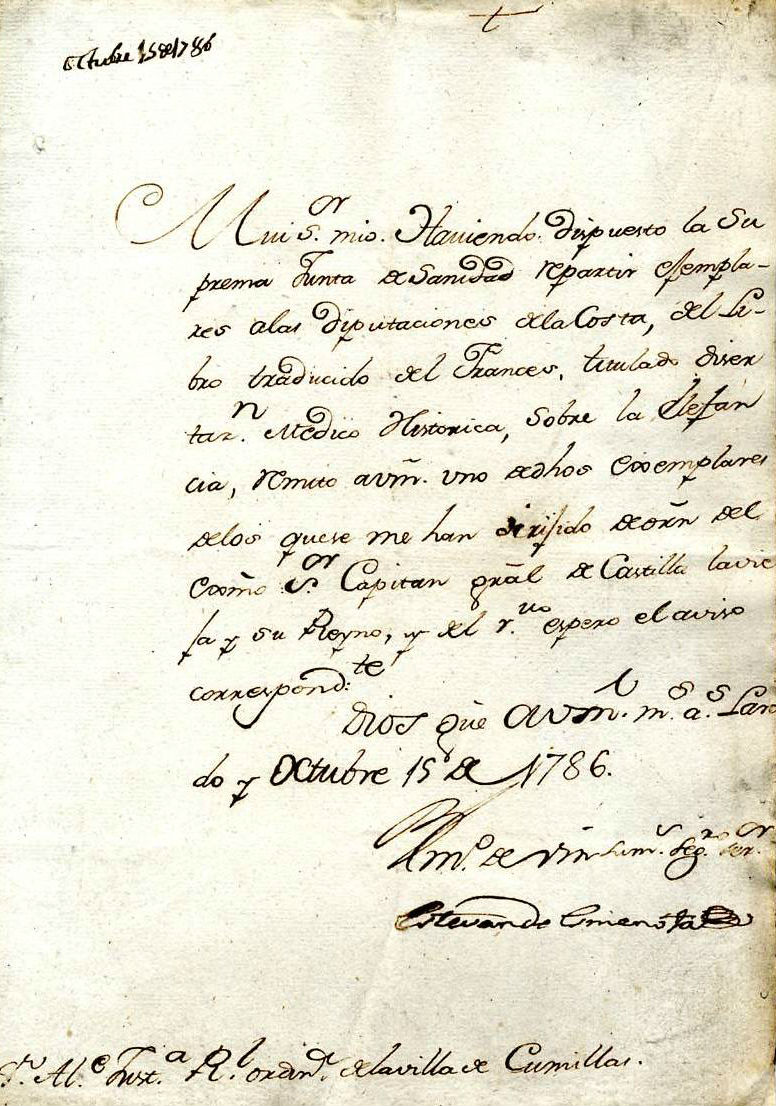 Octubre 15 de 1786
Mui S.or mio. Haviendo dispuesto la Su
prema Junta de Sanidad repartir exempla-
res a las Diputaciones de la Costa, del Li-
bro traducido del Frances, titulado diser
taz.n Medico Historica, sobre la Elefan
cia, remito a vm̃. uno de dhos exemplares
de los que se me han dirijido de orñ del
Exmõ S.or Capitan grãl de Castilla la vie
ja y su Reyno, y del r.uo espero el aviso
correspond.te
Dios gũe a vm̃. m.s a.s Lare
do y Octubre 15 de 1786.
de vm̃ su m.s seg.ro ser.or
Estevan de
S.or Al.e Just.a R.l ordin.a de la villa de Cumillas.